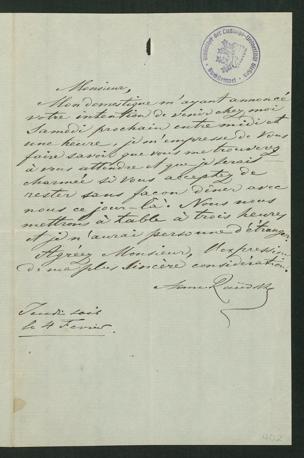 Monsieur,
Mon domestique m'ayant annoncé
votre intention de venir chez moi
Samedi prochain entre midi et
une heure, je m'empresse de vous
faire savoir que vous me trouverez
à vous attendre et que je serais
charmée si vous acceptez de
rester sans façon dîner avec
nous ce jour-là. Nous nous
mettrons à table à trois heures
et je n'aurai personne d'étranger.
Agréez Monsieur, l'expression
de ma plus sincère considération.
Anne
Jeudi soir
le 4 Fevrier.
402